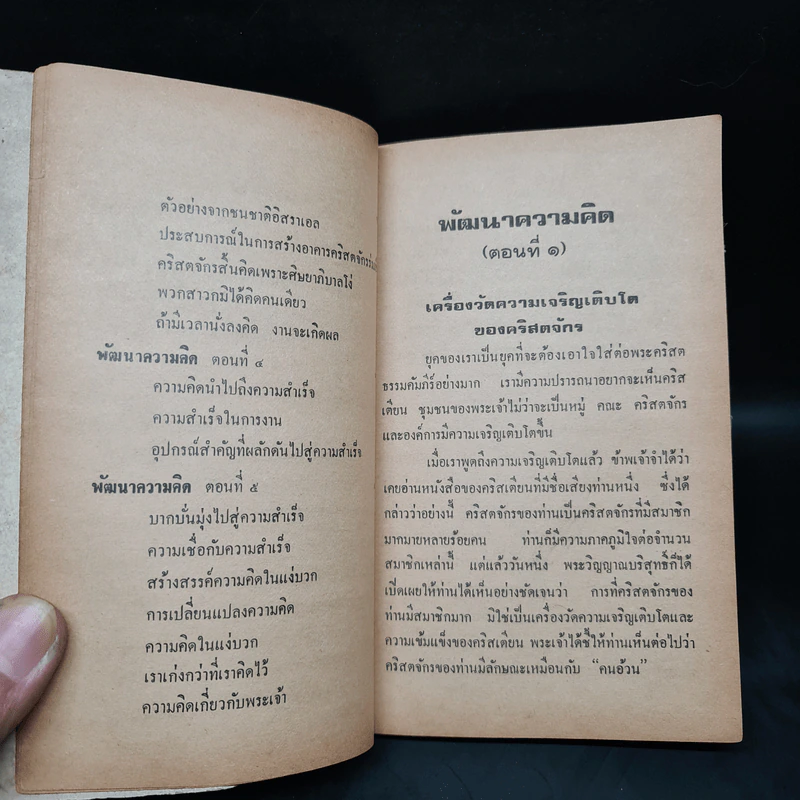 ตัวอย่างจากชนชาติอิสราเอล
ประสบการณ์ในการสร้างอาคารคริสตจักร
คริสตจักรสิ้นคิดเพราะศิษยาภิบาลโง่
พวกสาวกมิได้คิดคนเดียว
ถ้ามีเวลานั่งลงคิด งานจะเกิดผล
พัฒนาความคิด ตอนที่ ๔
ความคิดนำไปถึงความสำเร็จ
ความสำเร็จในการงาน
อุปกรณ์สำคัญที่ผลักดันไปสู่ความสำเร็จ
พัฒนาความคิด ตอนที่ ๕
บากบั่นมุ่งไปสู่ความสำเร็จ
ความเชื่อกับความสำเร็จ
สร้างสรรค์ความคิดในแง่บวก
การเปลี่ยนแปลงความคิด
ความคิดในแง่บวก
เราเก่งกว่าที่เราคิดไว้
ความคิดเกี่ยวกับพระเจ้า
พัฒนาความคิด
(ตอนที่ ๑)
เครื่องวัดความเจริญเติบโต
ของคริสตจักร
ยุคของเราเป็นยุคที่จะต้องเอาใจใส่ต่อพระคริสต
ธรรมคัมภีร์อย่างมาก เรามีความปรารถนาอยากจะเห็นคริส
เตียน ชุมชนของพระเจ้าไม่ว่าจะเป็นหมู่ คณะ คริสตจักร
และองค์การมีความเจริญเติบโตขึ้น
เมื่อเราพูดถึงความเจริญเติบโตแล้ว ข้าพเจ้าจำได้ว่า
เคยอ่านหนังสือของคริสเตียนที่มีชื่อเสียงท่านหนึ่ง ซึ่งได้
กล่าวว่าอย่างนี้ คริสตจักรของท่านเป็นคริสตจักรที่มีสมาชิก
มากมายหลายร้อยคน ท่านก็มีความภาคภูมิใจต่อจำนวน
สมาชิกเหล่านี้ แต่แล้ววันหนึ่ง พระวิญญาณบริสุทธิ์ก็ได้
เปิดเผยให้ท่านได้เห็นอย่างชัดเจนว่า การที่คริสตจักรของ
ท่านมีสมาชิกมาก มิใช่เป็นเครื่องวัดความเจริญเติบโตและ
ความเข้มแข็งของคริสเตียน พระเจ้าได้ชี้ให้ท่านเห็นต่อไปว่า
คริสตจักรของท่านมีลักษณะเหมือนกับ “คนอ้วน”